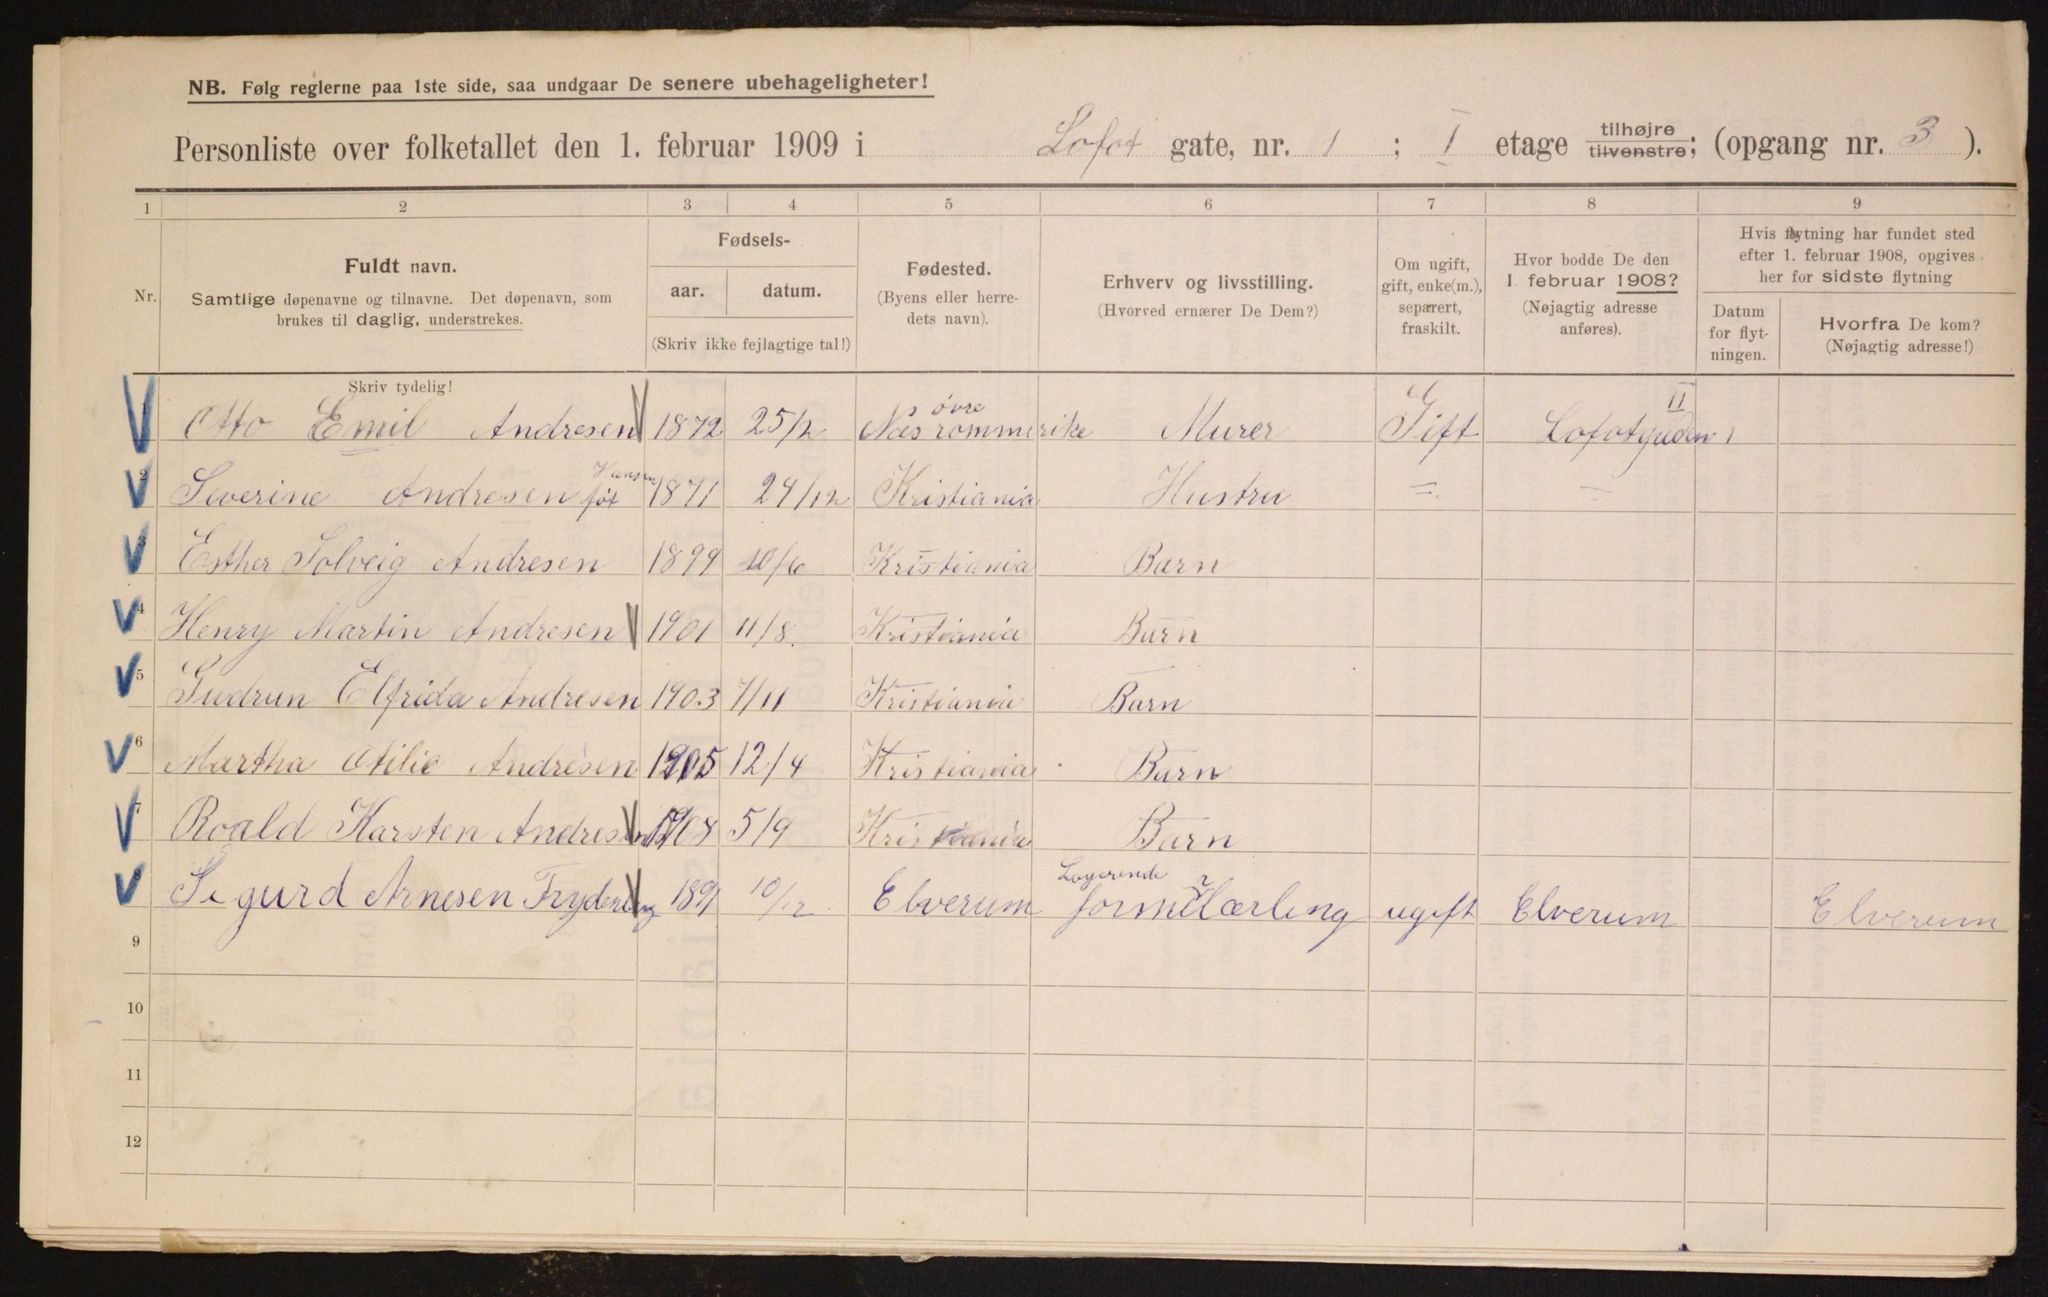 NB. Følg reglerne paa 1ste side, saa undgaar De senere ubehageligheter!
Personliste over folketallet den 1. februar 1909 i Lofot gate, nr. 1 ; I etage tilhøjre tilvenstre; (opgang nr. 3 ).
1 2 3 4 5 6 7 8 9
Nr.
Fuldt navn.
Samtlige døpenavne og tilnavne. Det døpenavn, som
brukes til daglig, understrekes.
Skriv tydelig!
Fødsels-
aar. datum.
(Skriv ikke fejlagtige tal!)
Fødested.
(Byens eller herre-
dets navn).
Erhverv og livsstilling.
(Hvorved ernærer De Dem?)
Om ugift,
gift, enke(m.),
separert,
fraskilt.
Hvor bodde De den
1. februar 1908?
(Nøjagtig adresse
anføres).
Hvis flytning har fundet sted
efter 1. februar 1908, opgives
her for sidste flytning
Datum
for flyt-
ningen.
Hvorfra De kom?
(Nøjagtig adresse!)
øvre II
1 Otto Emil Andresen 1872 25/12 Næs rommerike Murer Gift Lofotgaden 1
Hansen
2 Severine Andresen føt 1871 24/12 Kristiania Hustru
3 Esther Solveig Andresen 1899 10/6 Kristiania Barn
4 Henry Martin Andresen 1901 11/8. Kristiania Barn
5 Gudrun Elfrida Andresen 1903 7/11 Kristiania Barn
6 Martha Otilie Andresen 1905 12/4 Kristiania Barn
7 Roald Karsten Andresen 1908 5/9 Kristiania Barn
Logerende
Sigurd Arnesen 1891 10/12 Elverum formelærling ugift Elverum Elverum
9
10
11
12